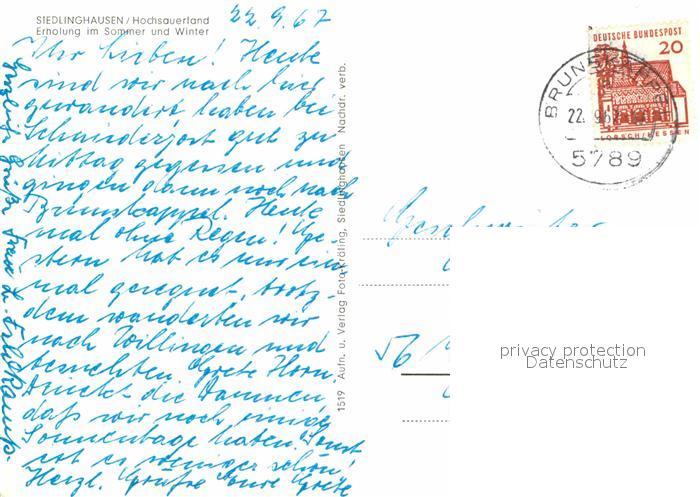 SIEDLINGHAUSEN / Hochsauerland
Erholung im Sommer und Winter
22.9.67
Ihr Lieben! Heute
sind wir nach hier
gewandert haben bei
gut zu
Mittag gegessen und
gingen dann noch nach
Brunskappel. Heute
mal ohne Regen! Ge-
stern hat es nur ein
mal geregnet, trotz-
dem wanderten wir
nach Willingen und
besuchten Grete Horn.
Drückt die Daumen,
daß wir noch einige
Sonnentage haben! Sonst
ist es weniger schön!
Herzl. Grüße Eure Grete
Grüße Frau
1519 Aufn. u. Verlag Foto-Kräling, Siedlinghausen Nachdr. verb.
DEUTSCHE BUNDESPOST
20
LORSCH/HESSEN
BRUNSKAPPEL
22. 9.67
5789
Geschwister
56
privacy protection
Datenschutz